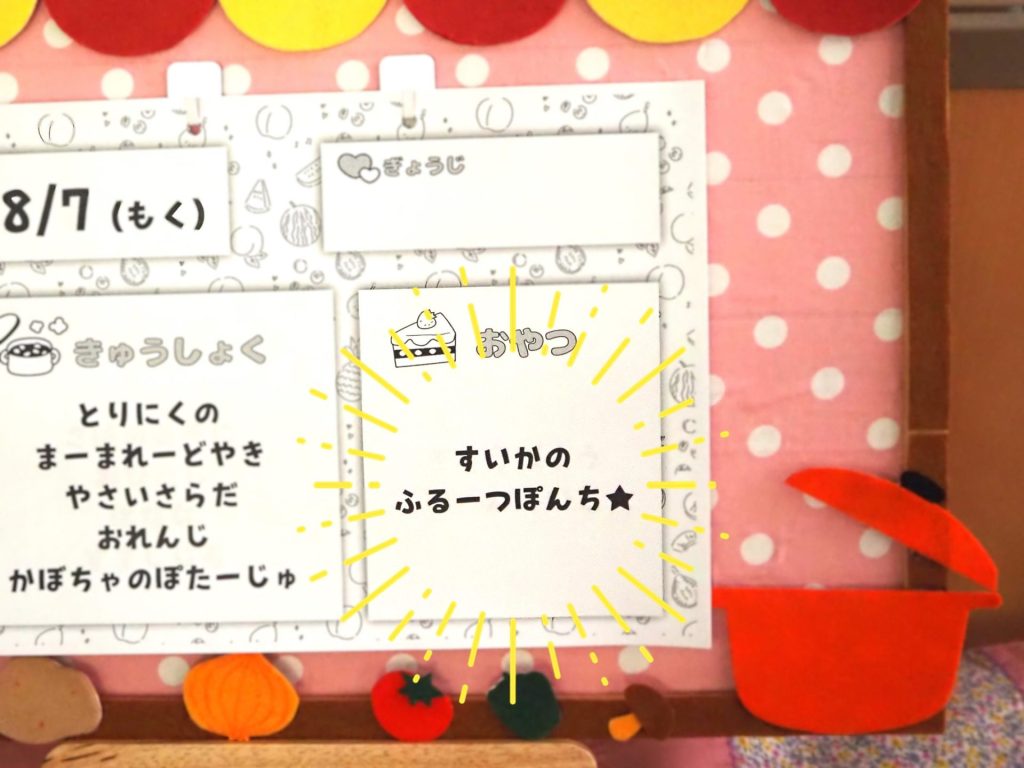 8/7 (もく)
ぎょうじ
きゅうしょく
とりにくの
まーまれーどやき
やさいさらだ
おれんじ
かぼちゃのぽたーじゅ
おやつ
すいかの
ふるーつぽんち★